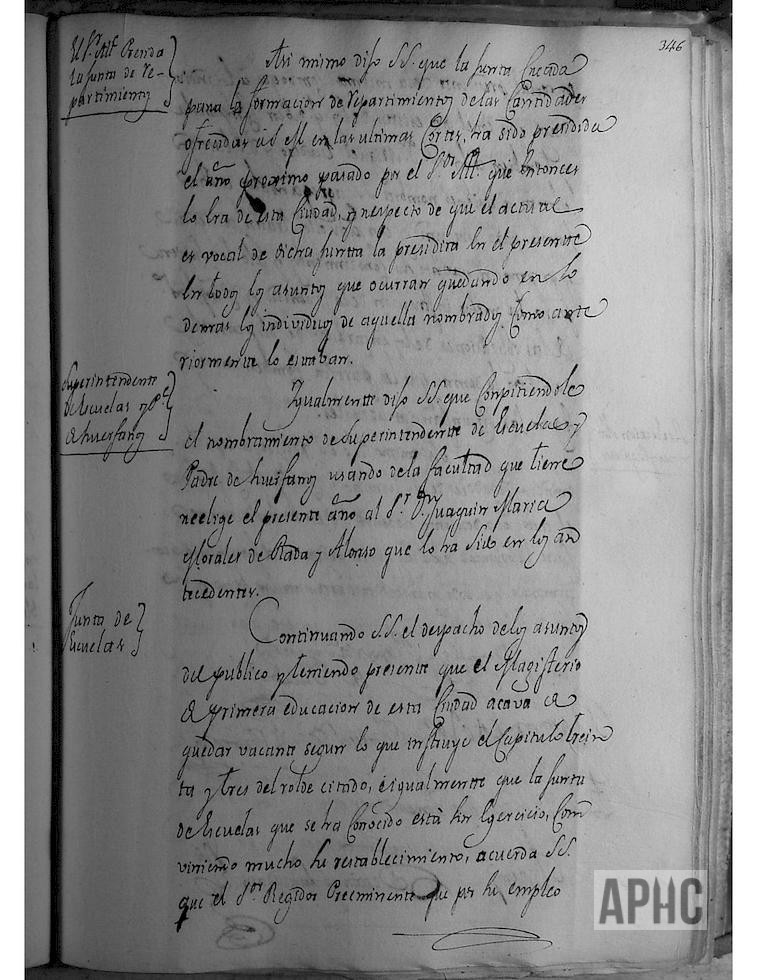 346
El Sr. Alc. Presida
la Junta de Re-
partimientos
Asi mimo dijo SS. que la Junta Creada
para la formacion de Repartimientos de las Cantidades
ofrecidas a S M en las ultimas Cortes, ha sido presidida
el año proximo pasado por el Sor. Alc. que entonces
lo era de esta Ciudad, y respecto de que el actual
es vocal de dicha Juntta la presidira en el presentte
en todos los asuntos que ocurran quedando en lo
demas los individuos de aquella nombrados, como ante
riormente lo estaban.
Superintendente
de Escuelas y Pe.
de huerfanos
Ygualmentte dijo SS. que Conpitiendole
el nombramiento de Superintendentte de Escuelas y
Padre de huerfanos usando de la facultad que tiene
reelige el presente año al Sr. Dn. Juaquin Maria
Morales de Rada y Alonso que lo ha sido en los an
tecedentes.
Junta de
Escuelas
Continuando SS. el despacho de los asuntos
del publico y teniendo presente que el Magisterio
de primera educacion de esta Ciudad acava de
quedar vacante segun lo que instruye el Capitulo trein
ta y tres del rolde citado, e igualmentte que la Junta
de Escuelas que se ha Conocido està sin Egercicio, Com
viniendo mucho su restablecimiento, acuerda SS.
que el Sor. Regidor Preeminente que por su empleo
APHC